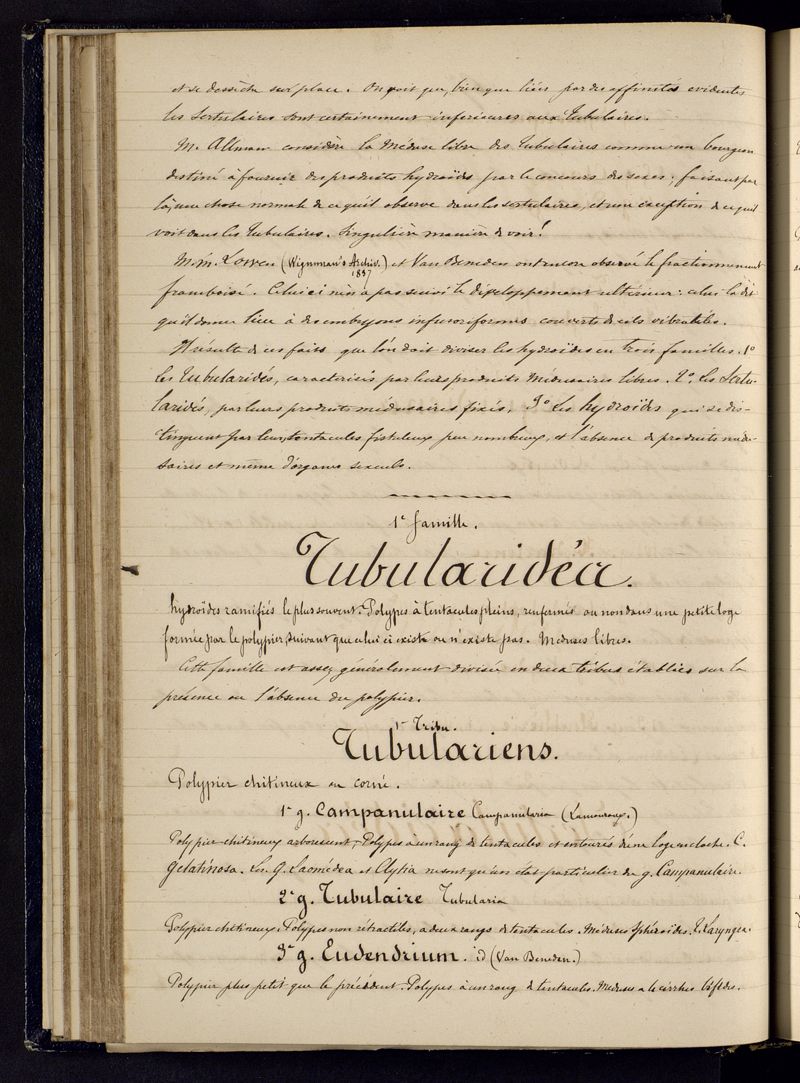 et se dessèche sur place. On voit que, bien que liées par des affinités evidentes
les Sertulaires sont certainement inferieures aux Tubulaires.
M. Allman considère la Méduse libre des Tubulaires comme un bourgeon
destiné à fournir des produits hydroïdes par le concours des sexes; faisant par
là, une chose normale de ce qu'il observe dans les sertulaires, et une exception de ce qu'il
voit dans les Tubulaires. Singulière manière de voir!
M.m. Lowen (Wigmman's Archiv. 1837) et Van Beneden ont encore observé le fractionnement
framboisé. Celui ci n'en a pas suivi le développement ulterieur: celui là dit
qu'il donne lieu à des embryons infusoriformes couverts de cils vibratiles.
Il résulte de ces faits que l'on doit diviser les hydroïdes en trois familles. 1o
les Tubularidés, caracterisés par leurs produits Médusaires libres. 2o. les Sertu-
laridés, par leurs produits médusaires fixés. 3o les hydroïdes qui se dis-
tinguent par leurs tentacules fistuleux peu nombreux, et l'absence de produits médu-
saires et même d'organes sexuels.
1e famille.
Tubularidéa.
hydroïdes ramifiés le plus souvent. Polypes à tentacules pleins, renfermés ou non dans une petite loge
formée par le polypier, suivant que celui ci existe ou n'existe pas. Meduses libres.
Cette famille est assez généralement divisée en deux tribus établies sur la
présence ou l'absence du polypier.
1e Tribu.
Tubulariens.
Polypier chitineux ou corné.
1e g. Campanulaire Campanularia (Lamouroux.)
Polypier chitineux arborescent, Polypes à un rang de tentacules et entourés d'une loge en cloche. C.
gelatinosa. Les G. Laomédea et Clytia ne sont qu'un état particulier du g. Campanulaire.
2e g. Tubulaire Tubularia
Polypier chitineux. Polypes non rétractiles, à deux rangs de tentacules. Méduses Sphéroïdes. T. Laryngea.
3e g. Eudendrium. id (Van Beneden.)
Polypier plus petit que le précédent. Polypes à un rang de tentacules. Meduses à cirrhes bifides.